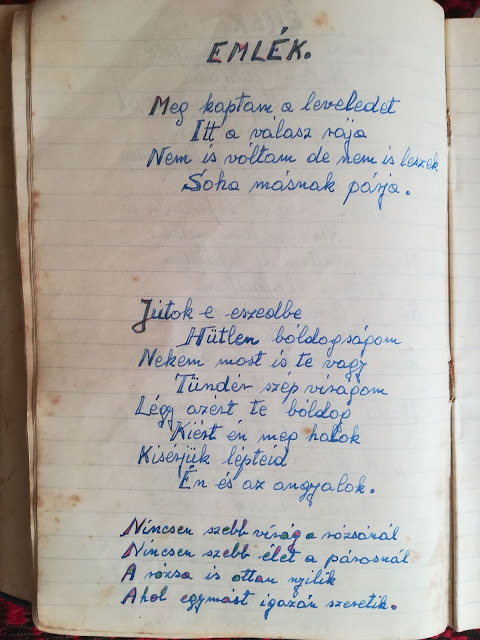 EMLÉK.
Meg kaptam a leveledet
Itt a válasz rája
Nem is vóltam de nem is leszek
Soha másnak párja.
Jutok-e eszedbe
Hütlen bóldogságom
Nekem most is te vagy
Tündér szép virágom
Légy azért te bóldog
Kiért én meg halok
Kisérjük lépteid
Én és az angyalok.
Nincsen szebb virág a rózsánál
Nincsen szebb élet a párosnál
A rózsa is ottan nyilik
Ahol egymást igazán szeretik.